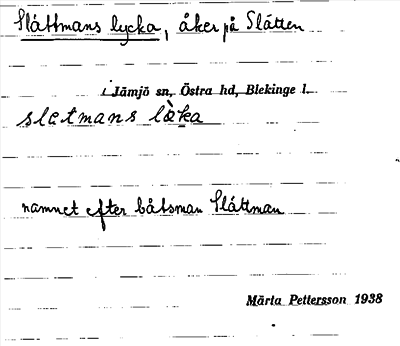 Slättmans lycka, åker på Slätten
i Jämjö sn, Östra hd, Blekinge l.
slætmans lɶ̀ka
namnet efter båtsman Slättman
Märta Pettersson 1938